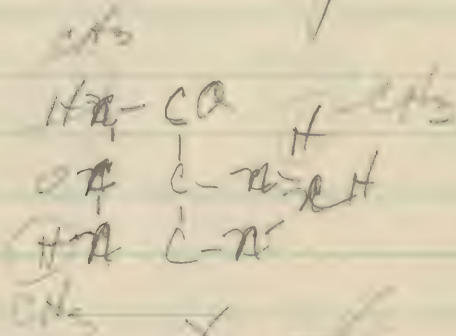 CH3
HN - CO
H - CH3
O N C - N = N H
H N C - N
CH3